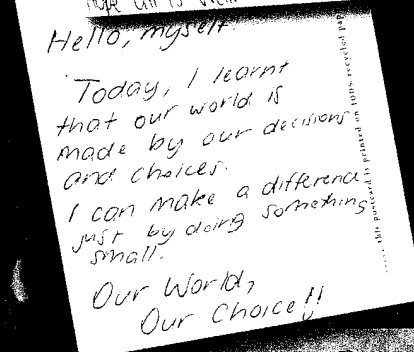 hope all is well
Hello, myself.
Today, I learnt
that our world is
made by our decisions
and choices.
I can make a difference
just by doing something
small.
Our World,
Our Choice!!
..... this postcard is printed on 100% recycled pap